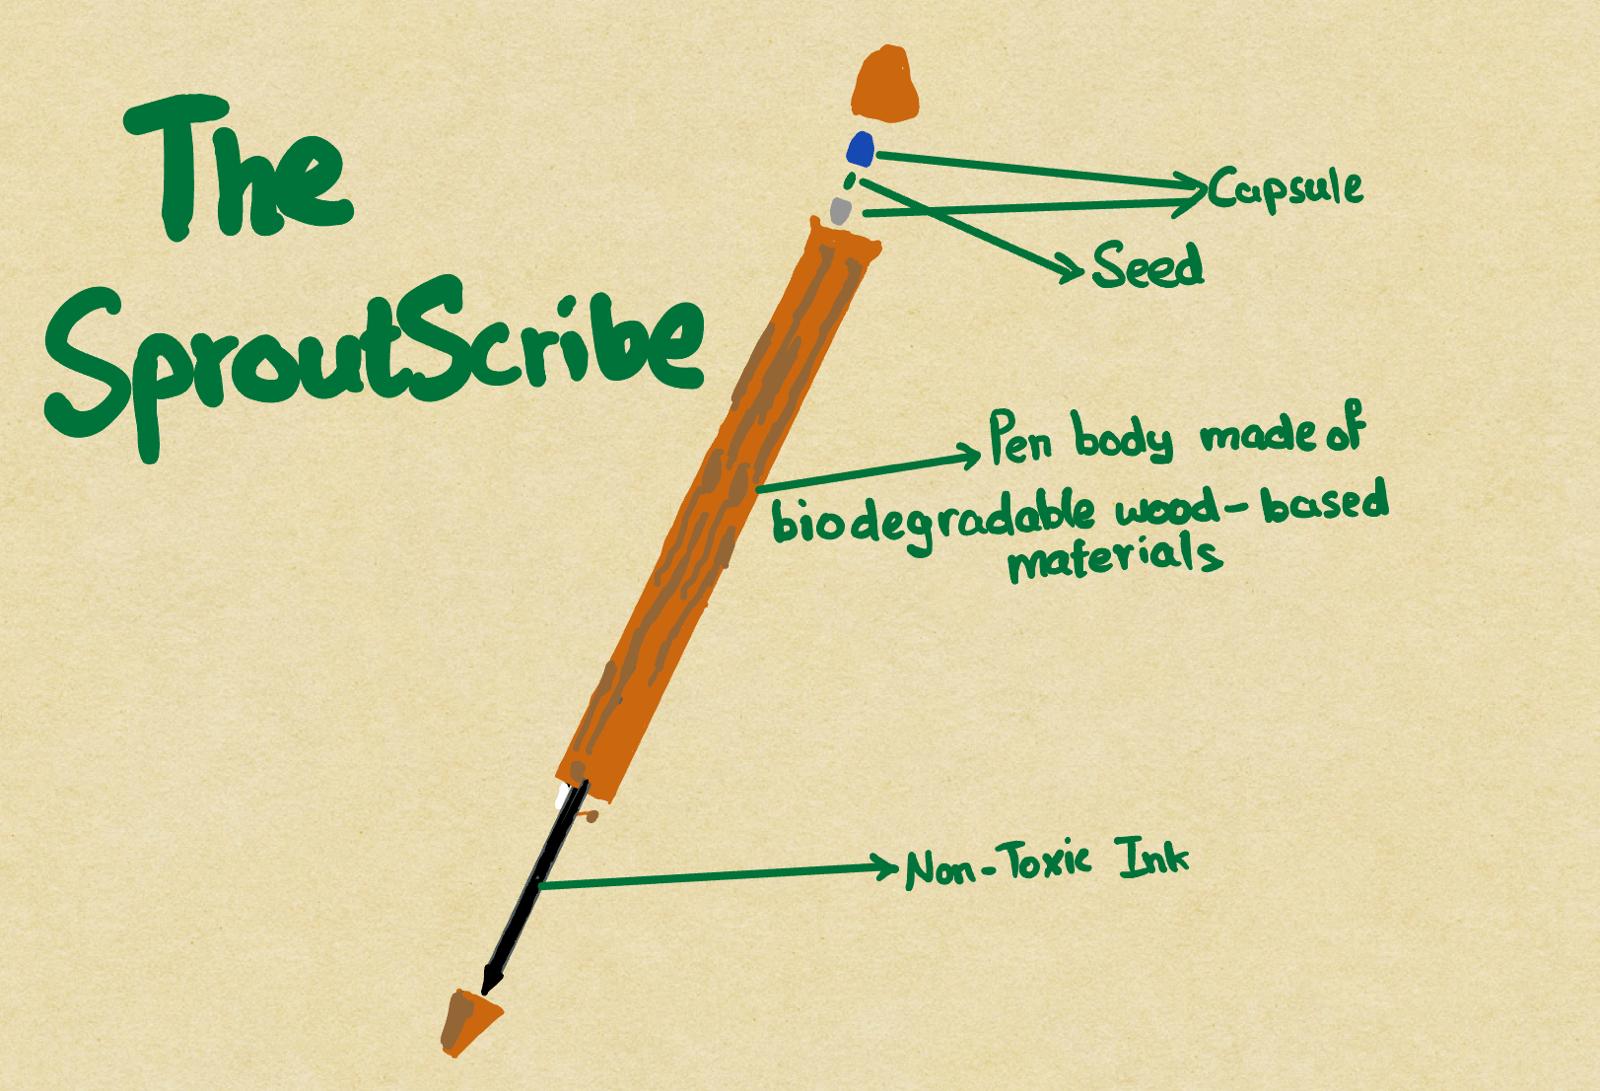 The
SproutScribe
Capsule
Seed
Pen body made of
biodegradable wood-based
materials
Non-Toxic Ink